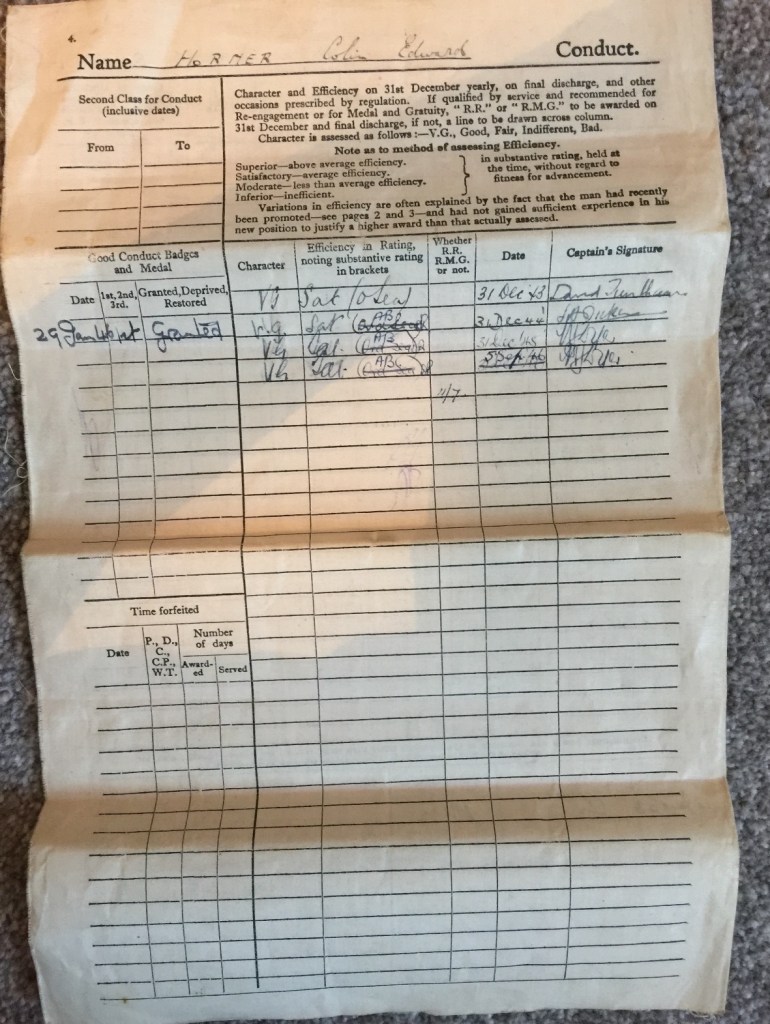 4.
Name HORNER Colin Edward Conduct.
Second Class for Conduct
(inclusive dates)
From To
Character and Efficiency on 31st December yearly, on final discharge, and other
occasions prescribed by regulation. If qualified by service and recommended for
Re-engagement or for Medal and Gratuity, "R.R." or "R.M.G." to be awarded on
31st December and final discharge, if not, a line to be drawn across column.
Character is assessed as follows:—V.G., Good, Fair, Indifferent, Bad.
Note as to method of assessing Efficiency.
Superior—above average efficiency.
Satisfactory—average efficiency.
Moderate—less than average efficiency.
Inferior—inefficient.
in substantive rating, held at
the time, without regard to
fitness for advancement.
Variations in efficiency are often explained by the fact that the man had recently
been promoted—see pages 2 and 3—and had not gained sufficient experience in his
new position to justify a higher award than that actually assessed.
Good Conduct Badges
and Medal
Date 1st, 2nd, 3rd. Granted, Deprived, Restored
Character
Efficiency in Rating,
noting substantive rating
in brackets
Whether
R.R.
R.M.G.
or not.
Date
Captain's Signature
VG Sat 31 Dec 43 David
29 Jan 1st Granted V.G. Sat 31 Dec 44
VG Sat AB 31 Dec '45
VG Sat AB 5 Sep 46
Time forfeited
Date
P., D.,
C.,
C.P.,
W.T.
Number
of days
Award-
ed
Served